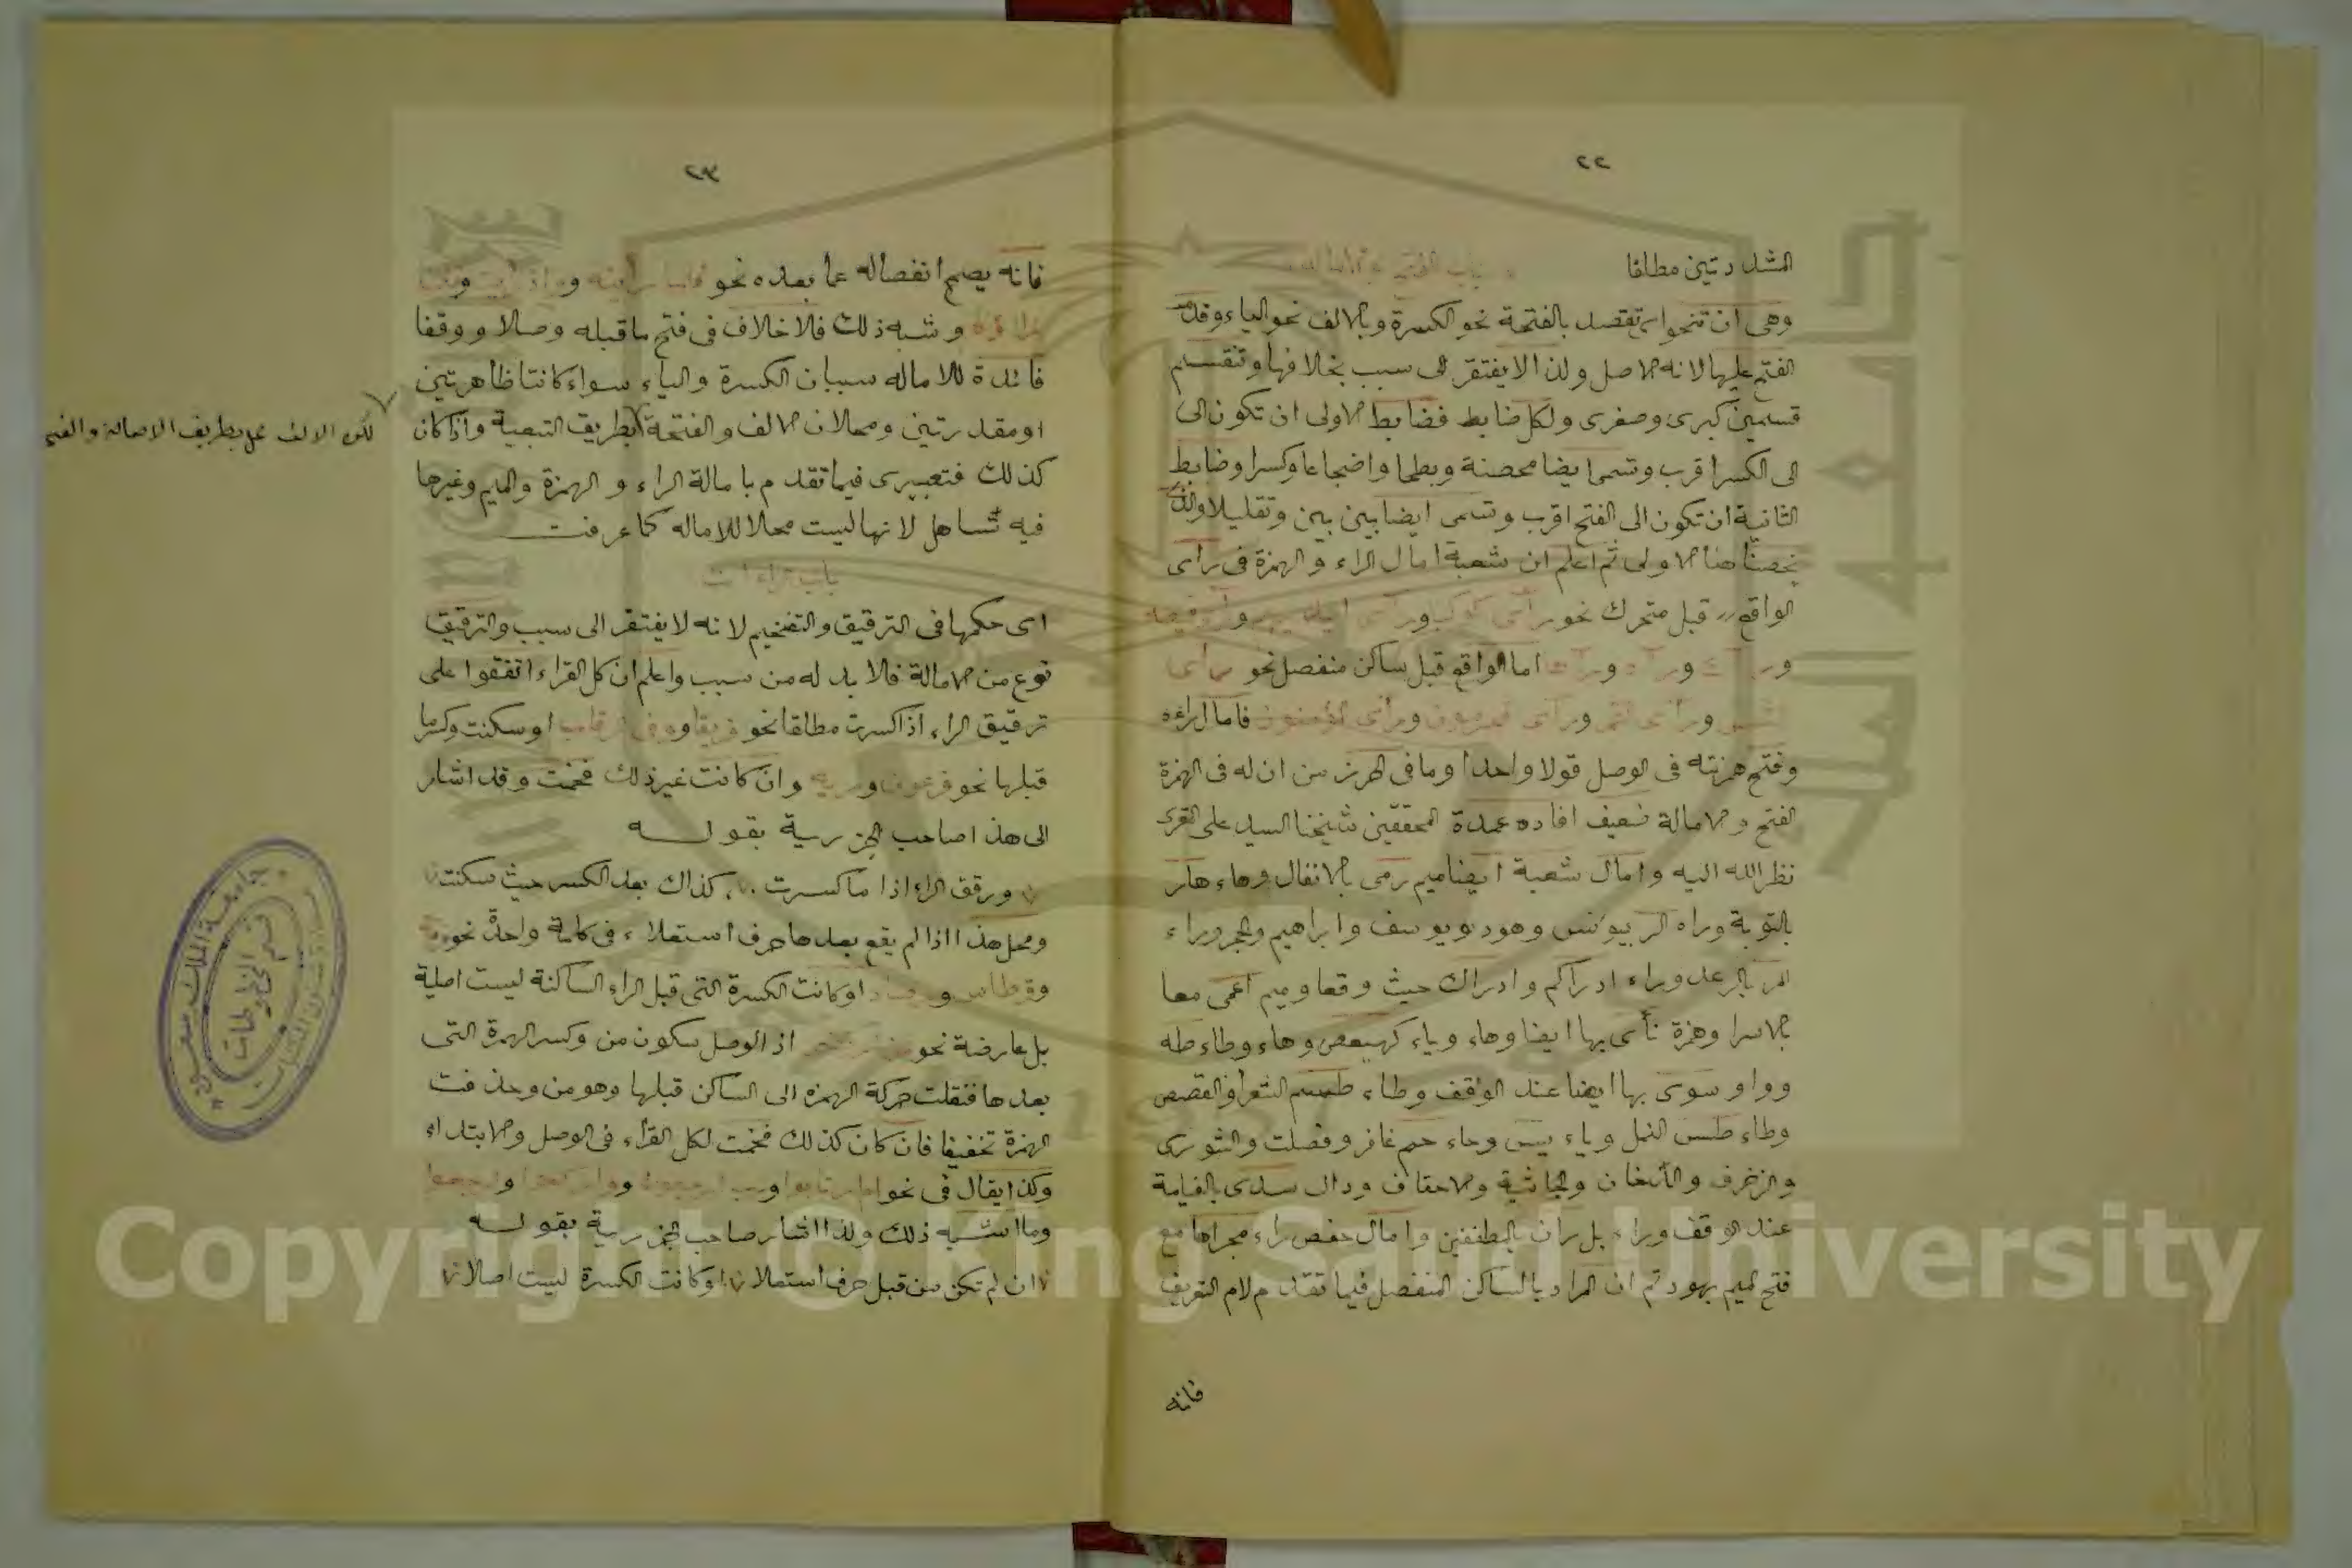 ٢٢
المشددتين مطلقا باب الفتح والامالة
وهى ان تنحو اى تقصد بالفتحة نحو الكسرة وبالالف نحو الياء وقدم
الفتح عليها لانه الاصل ولذا لا يفتقر الى سبب بخلافها وتنقسم
قسمين كبرى وصغرى ولكل ضابط فضابط الاولى ان تكون الى
الى الكسر اقرب وتسمى ايضا محضة وبطحا واضجاعا وكسرا وضابط
الثانية ان تكون الى الفتح اقرب وتسمى ايضا بين بين وتقليلا والذى
يخصنا هنا الاولى ثم اعلم ان شعبة امال الراء والهمزة فى رأى
الواقع قبل متحرك نحو رأى كوكبا ورأى ايديهم و
و و و اما الواقع قبل ساكن منفصل نحو رأى
الشمس ورأى القمر ورأى المجرمون ورأى المؤمنون فامال راءه
وفتح همزته فى الوصل قولا واحدا وما فى الحرز من ان له فى الهمزة
الفتح والامالة ضعيف افاده عمدة المحققين شيخنا السيد على
نظر الله اليه وامال شعبة ايضا ميم رمى بالانفال وهاء هار
بالتوبة وراء الر بيونس وهود ويوسف وابراهيم والحجر وراء
المر بالرعد وراء ادراكم وادراك حيث وقعا وميم اعمى معا
بالاسرا وهمزة نأى بها ايضا وهاء وياء كهيعص وهاء وطاء طه
وواو سوى بها ايضا عند الوقف وطاء طسم الشعرا والقصص
وطاء طس النمل وياء يس وحاء حم غافر وفصلت والشورى
والزخرف والدخان والجاثية والاحقاف ودال سدى بالقيامة
عند الوقف وراء بل ران بالمطففين وامال حفص راء مجراها مع
فتح الميم بهود ثم ان المراد بالساكن المنفصل فيما تقدم لام التعريف
فانه
٢٣
فانه يصح انفصاله عما بعده نحو و
وشبه ذلك فلا خلاف فى فتح ما قبله وصلا ووقفا
فائدة للاماله سببان الكسرة والياء سواء كانتا ظاهرتين
او مقدرتين ومحلان الالف والفتحة بطريق التبعية واذا كان
لكون الالف محل بطريق الاصالة والفتح
كذلك فتعبيرى فيما تقدم بامالة الراء والهمزة والميم وغيرها
فيه تساهل لانها ليست محلا للاماله كما عرفت
باب الراءات
اى حكمها فى الترقيق والتفخيم لانه لا يفتقر الى سبب والترقيق
نوع من الامالة فلا بد له من سبب واعلم ان كل القراء اتفقوا على
ترقيق الراء اذا كسرت مطلقا نحو فريقا وفى الرقاب او سكنت وكسر ما
قبلها نحو فرعون ومرية وان كانت غير ذلك فخمت وقد اشار
الى هذا صاحب الجزرية بقوله
ورقق الراء اذا ما كسرت ، كذاك بعد الكسر حيث سكنت
ومحل هذا اذا لم يقع بعدها حرف استعلاء فى كلمة واحدة نحو
وقرطاس و او كانت الكسرة التى قبل الراء الساكنة ليست اصلية
بل عارضة نحو اذ الوصل بسكون من وكسر الهمزة التى
بعدها فنقلت حركة الهمزة الى الساكن قبلها وهو من وحذفت
الهمزة تخفيفا فان كان كذلك فخمت لكل القراء فى الوصل والابتداء
وكذا يقال فى نحو ام ارتابوا ورب ارجعون و وارجعوا
وما اشبه ذلك ولذا اشار صاحب الجزرية بقوله
ان لم تكن من قبل حرف استعلا او كانت الكسرة ليست اصلا
جامعة الملك سعود
قسم المخطوطات
Copyright © King Saud University
جامعة الملك سعود
1957